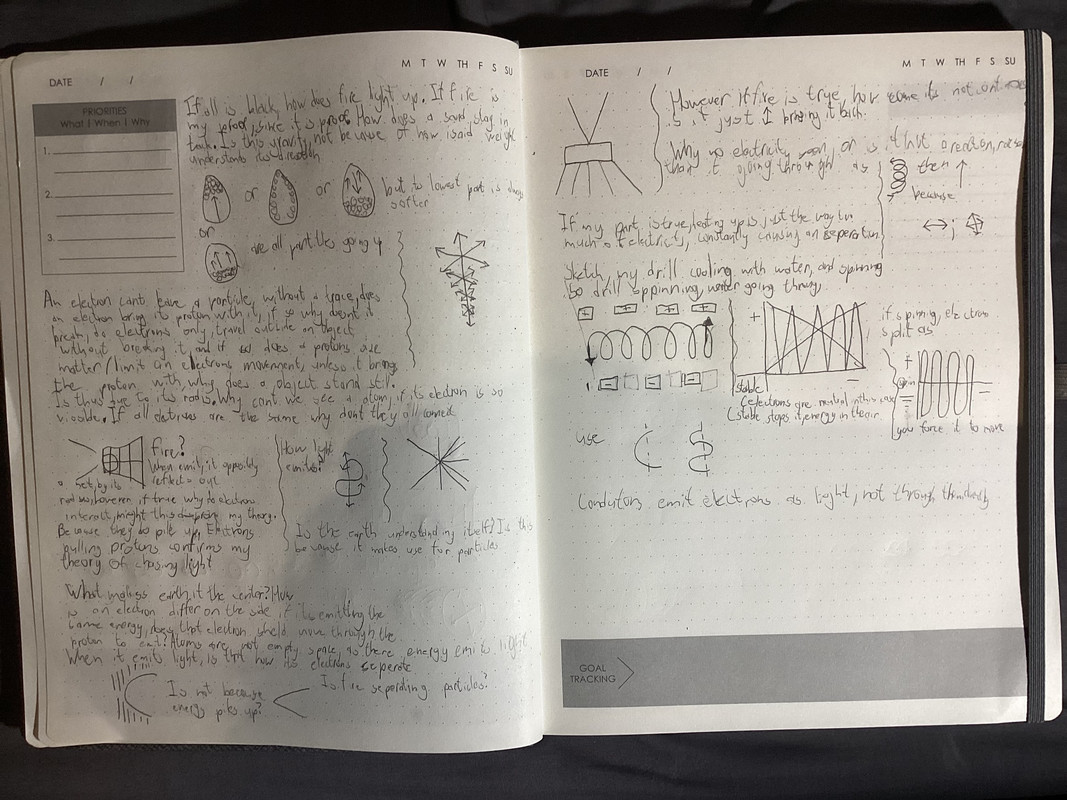 M T W TH F S SU
DATE / /
PRIORITIES
What | When | Why
1.
2.
3.
If all is black, how does fire light up. If fire is
my proof, since it is proof How does a sound stay in
touch. Is this gravity, not because of how is and weight
understands its direction
or
or
but to lowest part is always
softer
or
are all particles going up
An electron cant leave a particle, without a trace, does
an electron bring its proton with it, if so why doesnt it
break, do electrons only travel outside an object
without breaking it and if so does a protons are
matter/limit an electrons movement, unless it brings
the proton with why does a object stand still.
Is thus due to its radis. Why cant we see a atom, if its electron is so
visable. If all electrons are the same why dont they all connect
fire?
When emit, it oppositly
reflects our
Because they do pile up, Electrons
pulling protons confirms my
theory of chasing light
How light
emites?
Is the earth understanding itself? Is this
because it makes use for particles
What makes earth it the center? How
is an electron differ on the side, if its emitting the
same energy, does that electron shield move through the
proton to exit? Atoms are not empty space, as there energy emits light
When it emits light, is that how its electrons seperate
Is not because
energy piles up?
Is fire seperding particles?
DATE / /
M T W TH F S SU
However if fire is true, how come its not
is it just I bring it back.
Why does electricity or is it that creation,
than it going through as
then
because
;
If my part is true, heating up is just the way to
much of electricity, constantly causing an seperation
Sketch, my drill cooling with water, and spinning
so drill sppinning, water going throug,
+ + + +
- - -
+
-
stable
(electrons are neutral in this case
(stable stops it, energy in the air
if spinnig, electron
split as
+
spin
you force it to move
use
Condutors emit electrons as light, not through themselves
GOAL
TRACKING